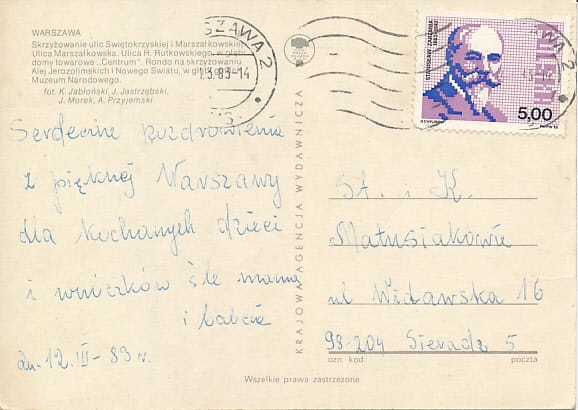 WARSZAWA
Skrzyżowanie ulic Świętokrzyskiej i Marszałkowskiej.
Ulica Marszałkowska. Ulica H. Rutkowskiego, w głębi
domy towarowe „Centrum". Rondo na skrzyżowaniu
Alej Jerozolimskich i Nowego Światu, w głębi gmach
Muzeum Narodowego.
fot. K. Jabłoński, J. Jastrzębski,
J. Morek, A. Przyjemski
SZAWA 2
3.83-14
5,00
Serdeczne pozdrowienia
z pięknej Warszawy
dla kochanych dzieci
i wnuczków śle mama
i babcia
dn. 12. III - 83 r.
KRAJOWA AGENCJA WYDAWNICZA
St. i K.
Matusiakowie
ul Widawska 16
98-204 Sieradz 5
ozn. kod
poczta
Wszelkie prawa zastrzeżone